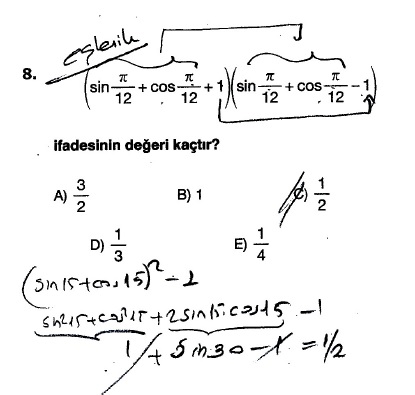 eşlenik
8. (sin π/12 + cos π/12 + 1)(sin π/12 + cos π/12 − 1)
ifadesinin değeri kaçtır?
A) 3/2 B) 1 C) 1/2
D) 1/3 E) 1/4
(sin15+cos15)² − 1
sin²15+cos²15 + 2sin15.cos15 − 1
1 + sin30 − 1 = 1/2